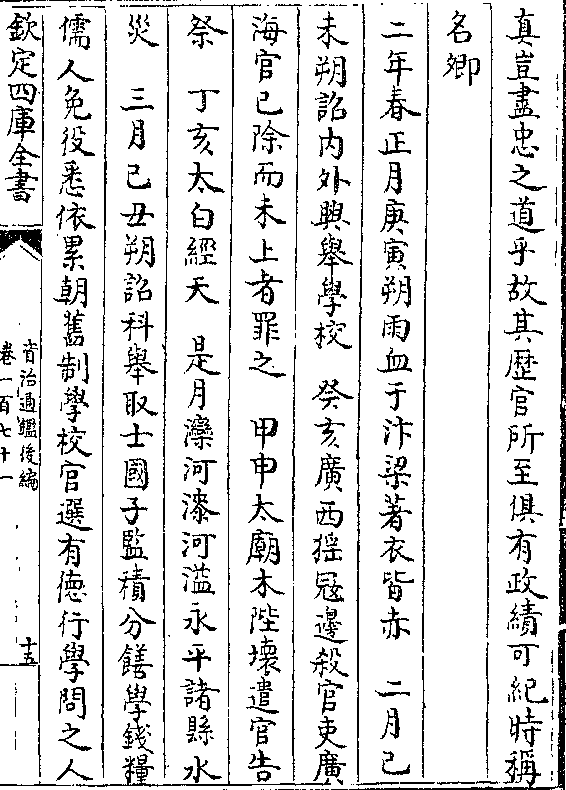 真豈盡忠之道乎故其歴官所至俱有政績可紀時稱
名卿
二年春正月庚寅朔雨血于汴梁著衣皆赤　二月己
未朔詔内外興舉學校　癸亥廣西猺冦邊殺官吏廣
海官已除而未上者罪之　甲申太廟木陛壊遣官告
祭　丁亥太白經天　是月灤河漆河溢永平諸縣水
災　三月己丑朔詔科舉取士國子監積分饍學錢糧
儒人免役悉依累朝舊制學校官選有徳行學問之人
欽定四庫全書
資治通鑑後編
卷一百七十一
十五